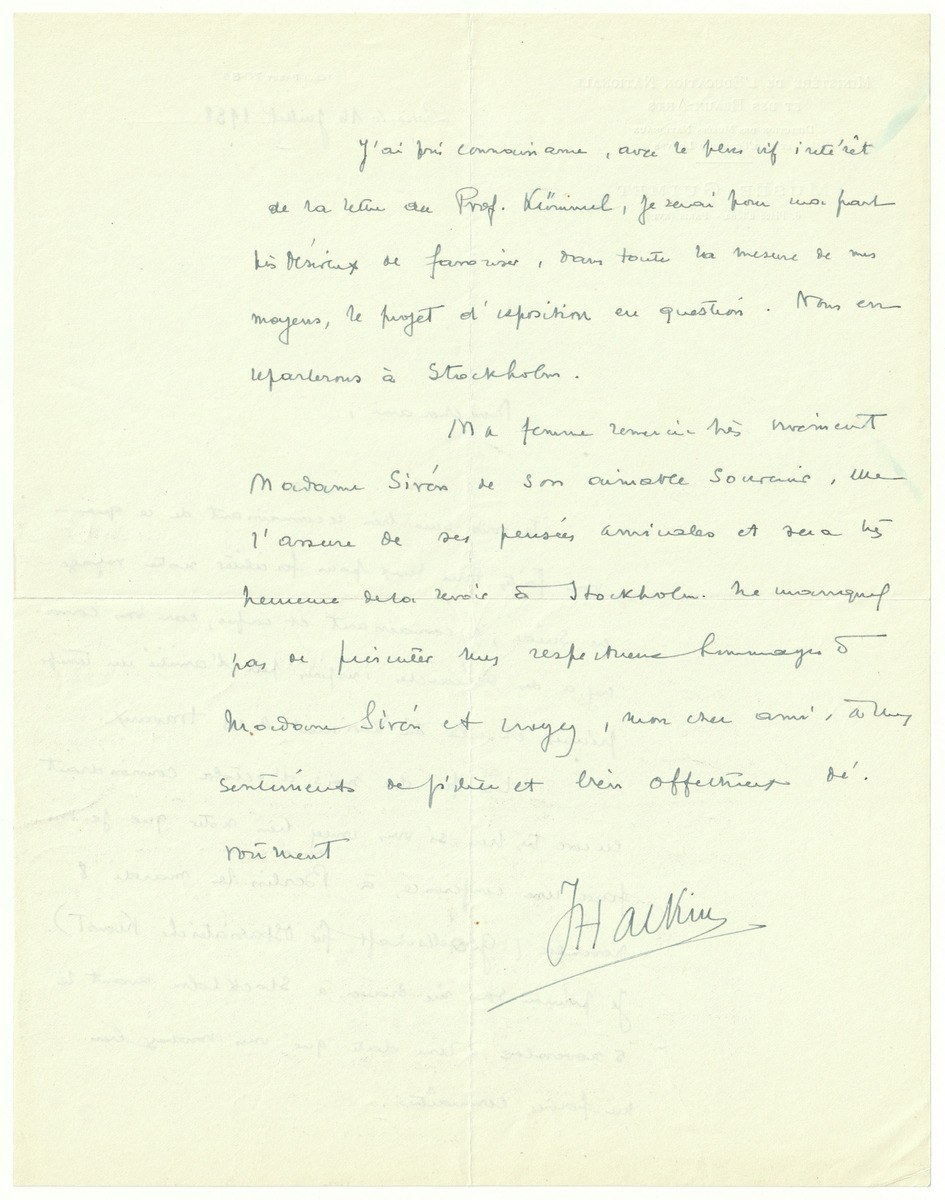 J'ai pris connaissance, avec le plus vif intérêt
de la lettre du Prof. Kümmel, je serai pour ma part
très désireux de favoriser, dans toute la mesure de mes
moyens, le projet d'exposition en question. Nous en
reparlerons à Stockholm.
Ma femme remercie très vivement
Madame Sirén de son aimable souvenir, elle
l'assure de ses pensées amicales et sera très
heureuse de la revoir à Stockholm. Ne manquez
pas de présenter mes respectueux hommages à
Madame Sirén et croyez, mon cher ami, à mes
sentiments de fidèle et bien affectueux dé-
voûment
JHackin